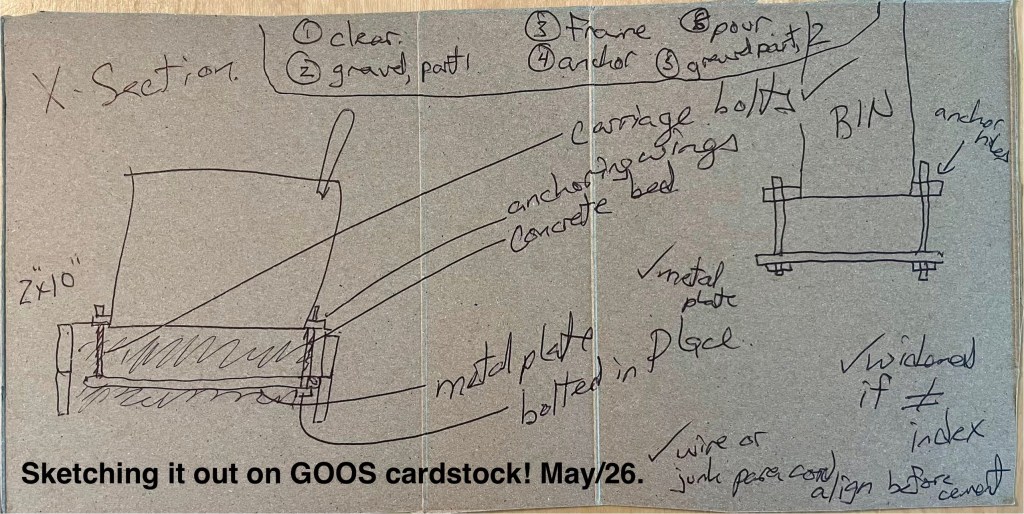 X-Section.
① clear.
② gravel, part 1
③ Frame
④ anchor
⑤ gravel part 2
⑥ pour
carriage bolts ✓
anchoring wings
concrete bed
metal plate
bolted in place.
2"x10"
BIN
anchor
holes
✓ metal
plate
✓ widened
if ≠
index
✓ wire or
junk paracord
align before
cement
Sketching it out on GOOS cardstock! May/26.